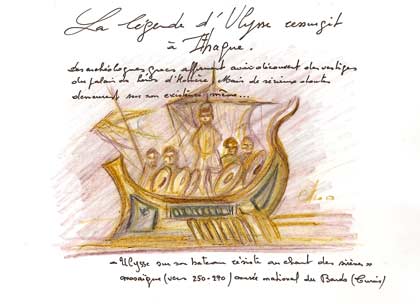 La légende d'Ulysse resurgit
à Ithaque.
Les archéologues grecs affirment avoir découvert des vestiges
du palais du héros d'Homère. Mais de sérieux doutes
demeurent sur son existence même...
"Ulysse sur son bateau résiste au chant des sirènes"
mosaïque (vers 250-290) musée national du Bardo (Tunis)